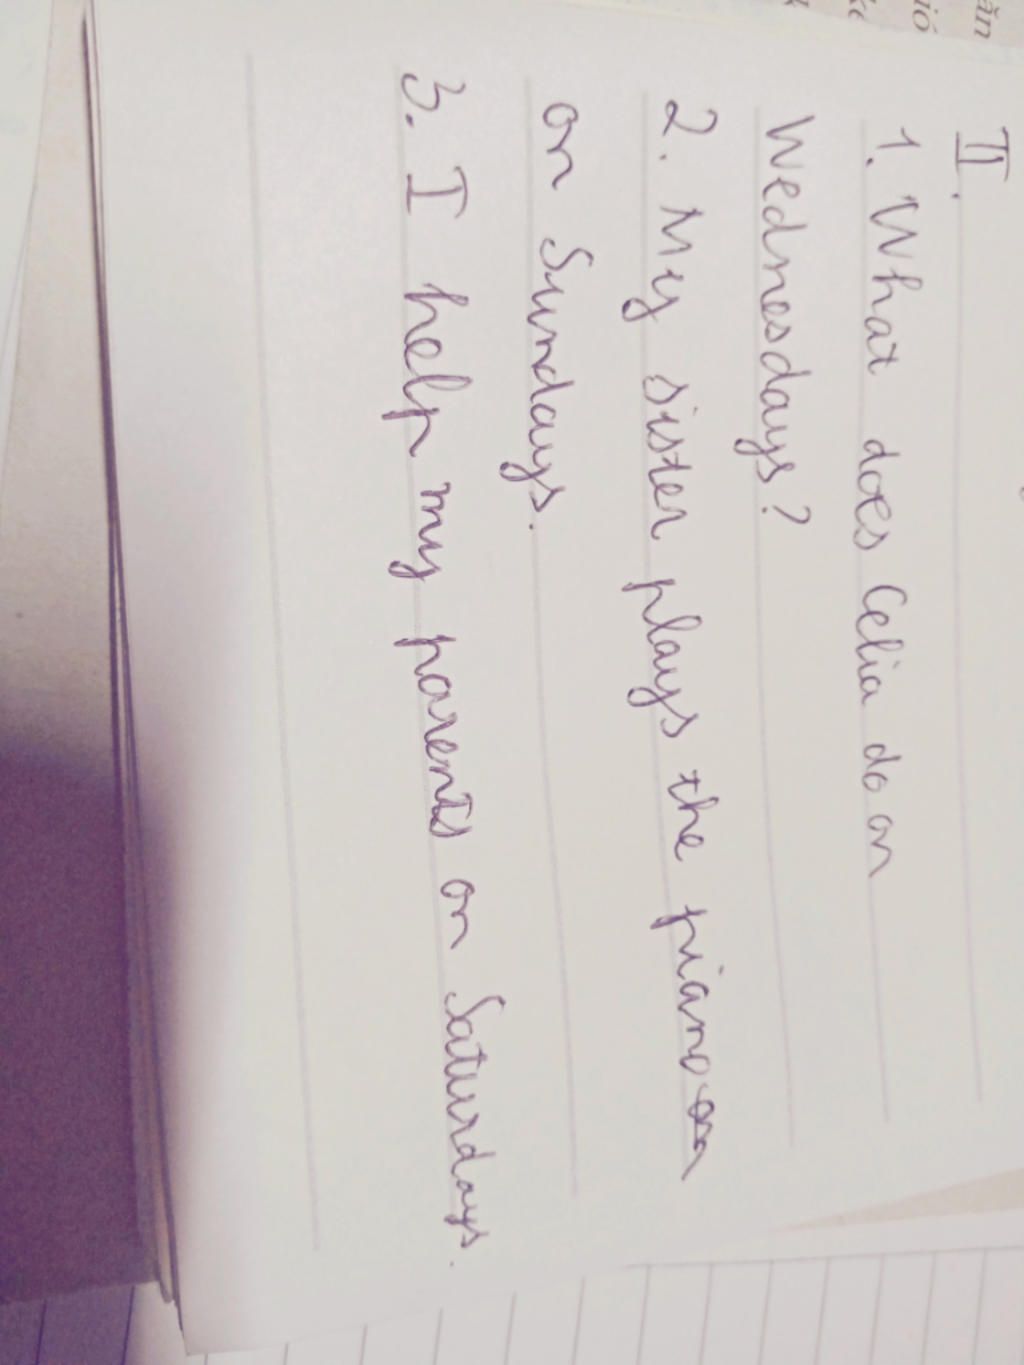 II.
1. What does Celia do on
Wednesdays?
2. My sister plays the piano
on Sundays.
3. I help my parents on Saturdays.
ăn
ió